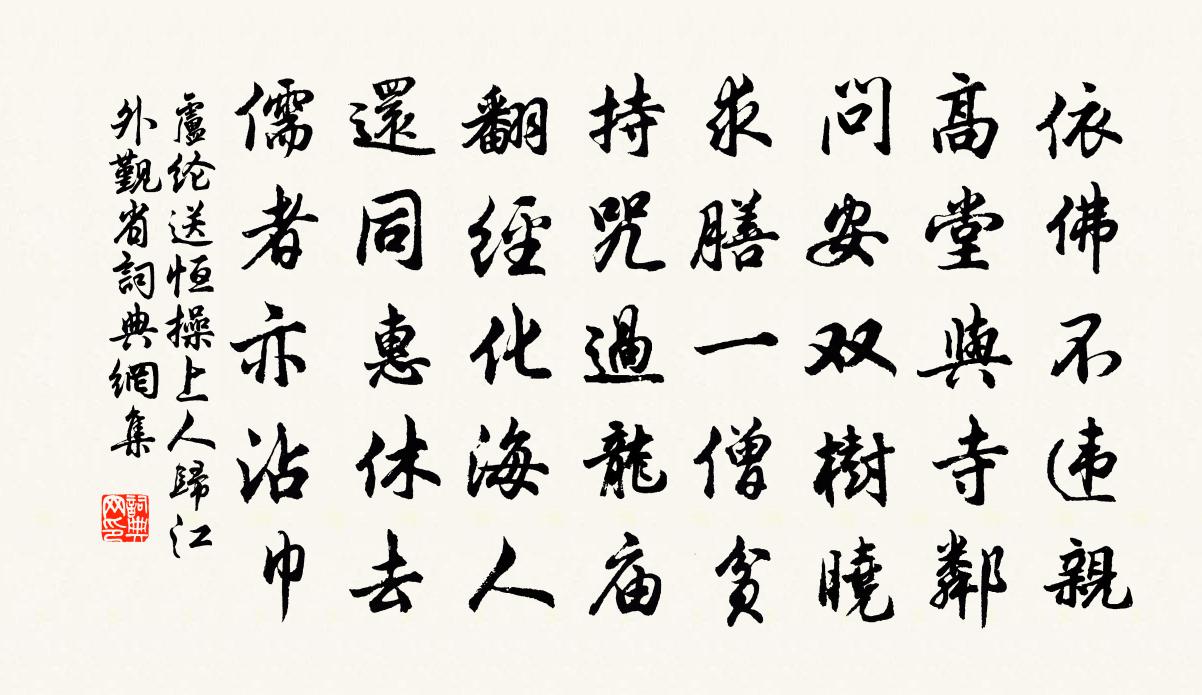 依佛不违親
高堂與寺鄰
問安双樹曉
求膳一僧貧
持咒過龍庙
翻經化海人
還同惠休去
儒者亦沾巾
盧纶送恒操上人歸江
外觐省詞典網集
詞典
网印